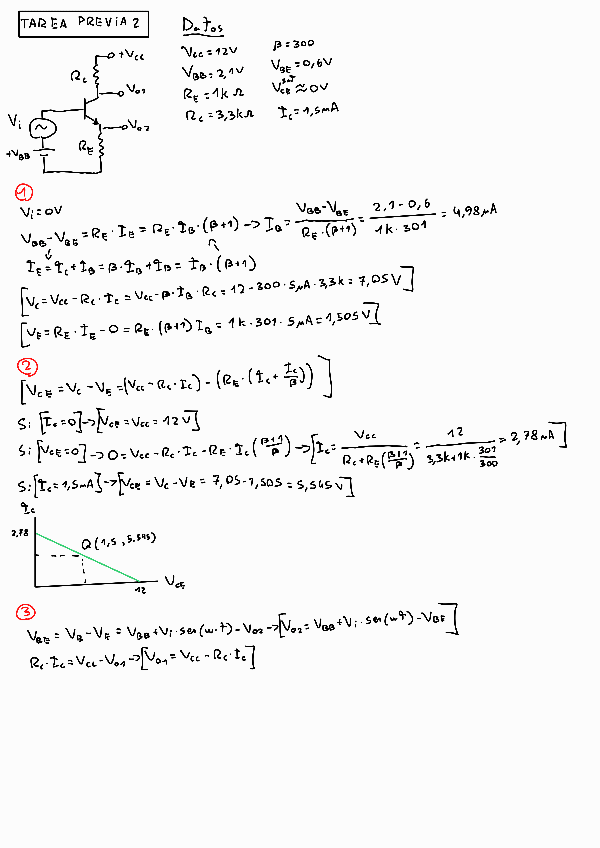 TAREA PREVIA 2
Datos
Vcc = 12V β = 300
VBB = 2,1V VBE = 0,6V
RE = 1kΩ VCEsat ≈ 0V
Rc = 3,3kΩ Ic = 1,5mA
+Vcc
Rc
Vo1
Vi
Vo2
+VBB
RE
1
Vi = 0V
VBB - VBE = RE · IE = RE · IB · (β+1) -> IB = (VBB - VBE) / (RE · (β+1)) = (2,1 - 0,6) / (1k · 301) = 4,98µA
IE = Ic + IB = β · IB + IB = IB · (β+1)
[Vc = Vcc - Rc · Ic = Vcc - β · IB · Rc = 12 - 300 · 5µA · 3,3k = 7,05V]
[VE = RE · IE - 0 = RE · (β+1) IB = 1k · 301 · 5µA = 1,505V]
2
[VCE = Vc - VE = (Vcc - Rc · Ic) - (RE · (Ic + Ic/β))]
Si [Ic = 0] -> [VCE = Vcc = 12V]
Si [VCE = 0] -> 0 = Vcc - Rc · Ic - RE · Ic ((β+1)/β) -> [Ic = Vcc / (Rc + RE ((β+1)/β)) = 12 / (3,3k + 1k · 301/300) = 2,78mA]
Si [Ic = 1,5mA] -> [VCE = Vc - VE = 7,05 - 1,505 = 5,545V]
Ic
2,78
Q (1,5 , 5.545)
VCE
12
3
VBE = VB - VE = VBB + Vi · sen(w·t) - Vo2 -> [Vo2 = VBB + Vi · sen(wt) - VBE]
Rc · Ic = Vcc - Vo1 -> [Vo1 = Vcc - Rc · Ic]